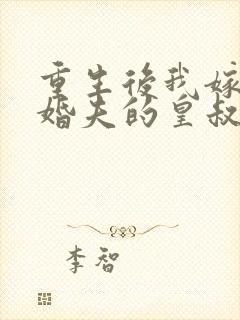 重生後我嫁
婚夫的皇叔
李智